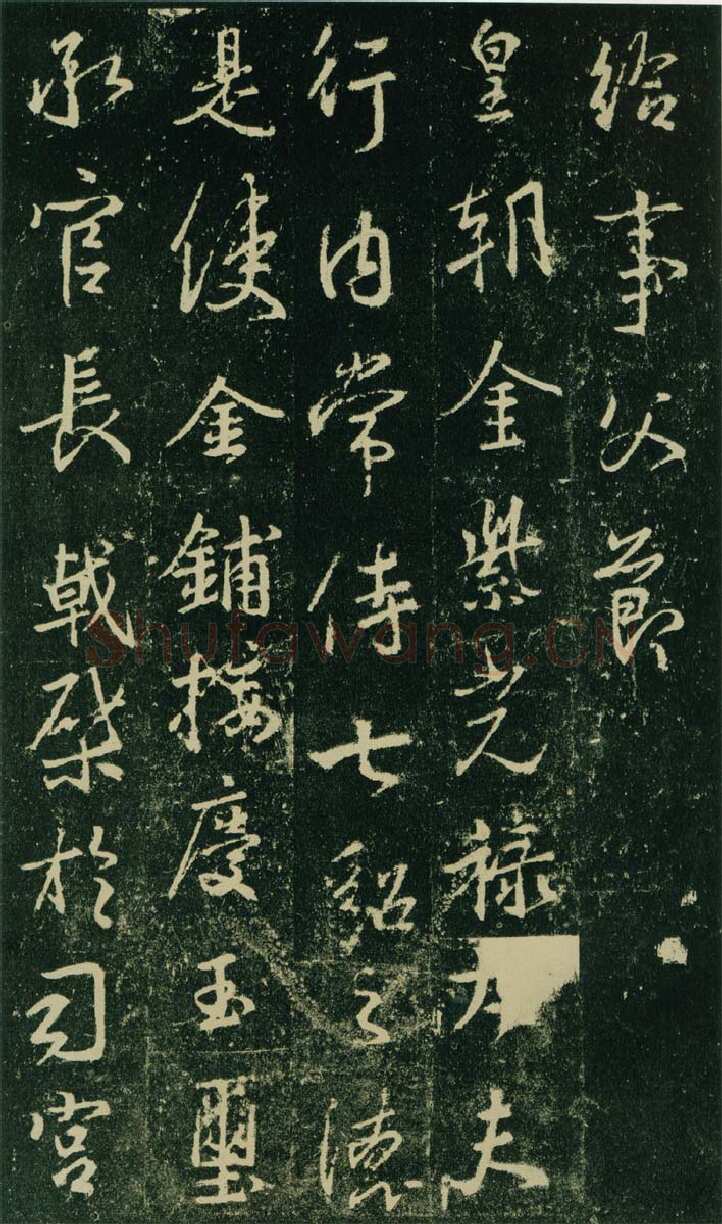 給事父節
皇朝金紫光祿大夫
行内常侍七貂之德
是使金鋪接慶玉璽
承官長戟棨於司宮
Shufawang.CN